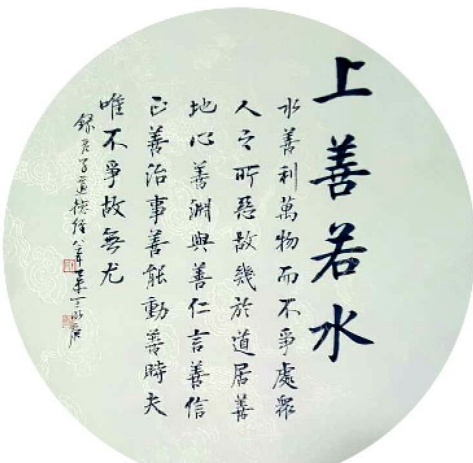 上善若水
水善利萬物而不爭處眾
人之所惡故幾於道居善
地心善淵與善仁言善信
正善治事善能動善時夫
唯不爭故無尤
錄老子道德經八章